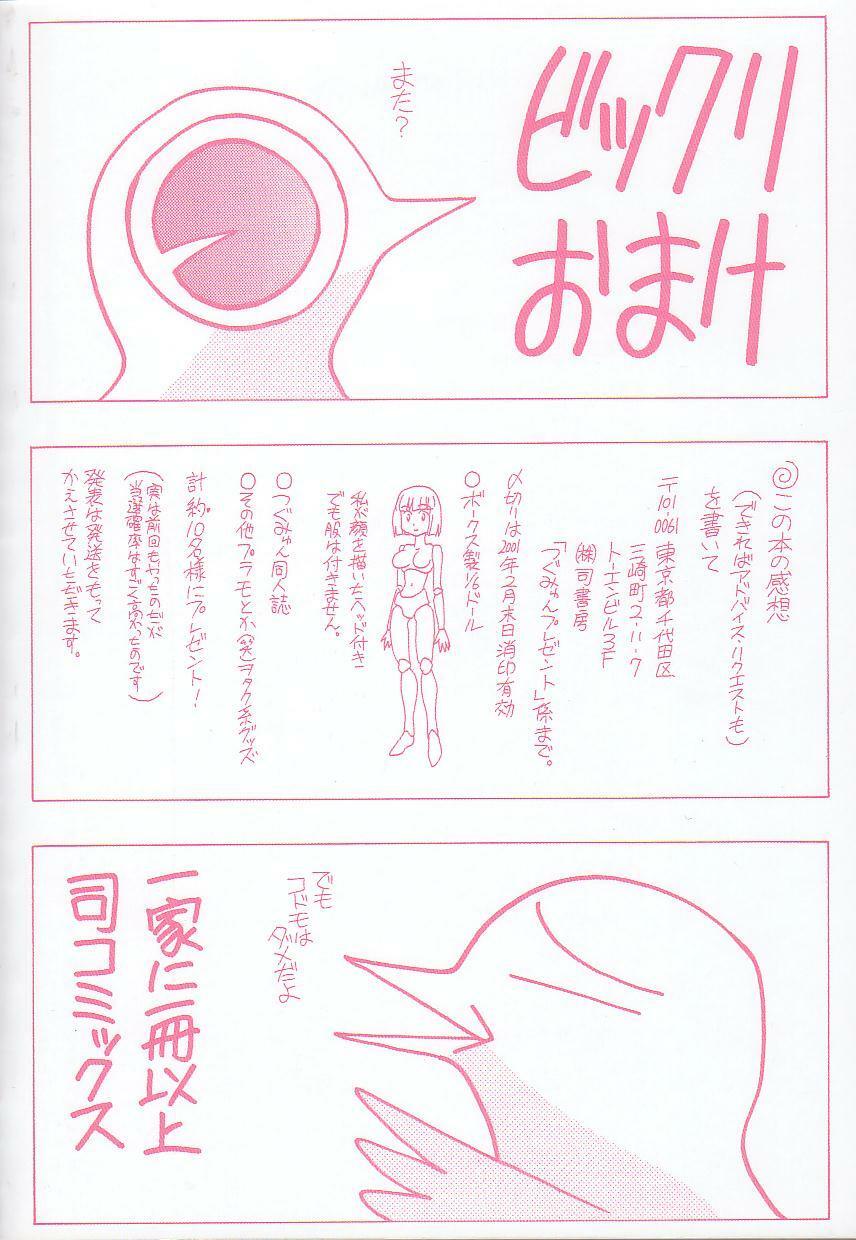 ビックリ
おまけ
また?
◎この本の感想
(できればアドバイス・リクエストも)
を書いて
〒101-0061 東京都千代田区
三崎町2-11-7
トーエンビル3F
㈱司書房
「つぐみゅんプレゼント」係まで。
〆切りは2001年2月末日消印有効
○ボークス製1/6ドール
私が顔を描いたヘッド付き
でも服は付きません。
○つぐみゅん同人誌
○その他プラモとか(笑)ヲタク系グッズ
計約10名様にプレゼント!
(実は前回もやったのだが
当選確率はすごく高かったのです)
発表は発送をもって
かえさせていただきます。
でも
コドモは
ダメだよ
一家に一冊以上
司コミックス